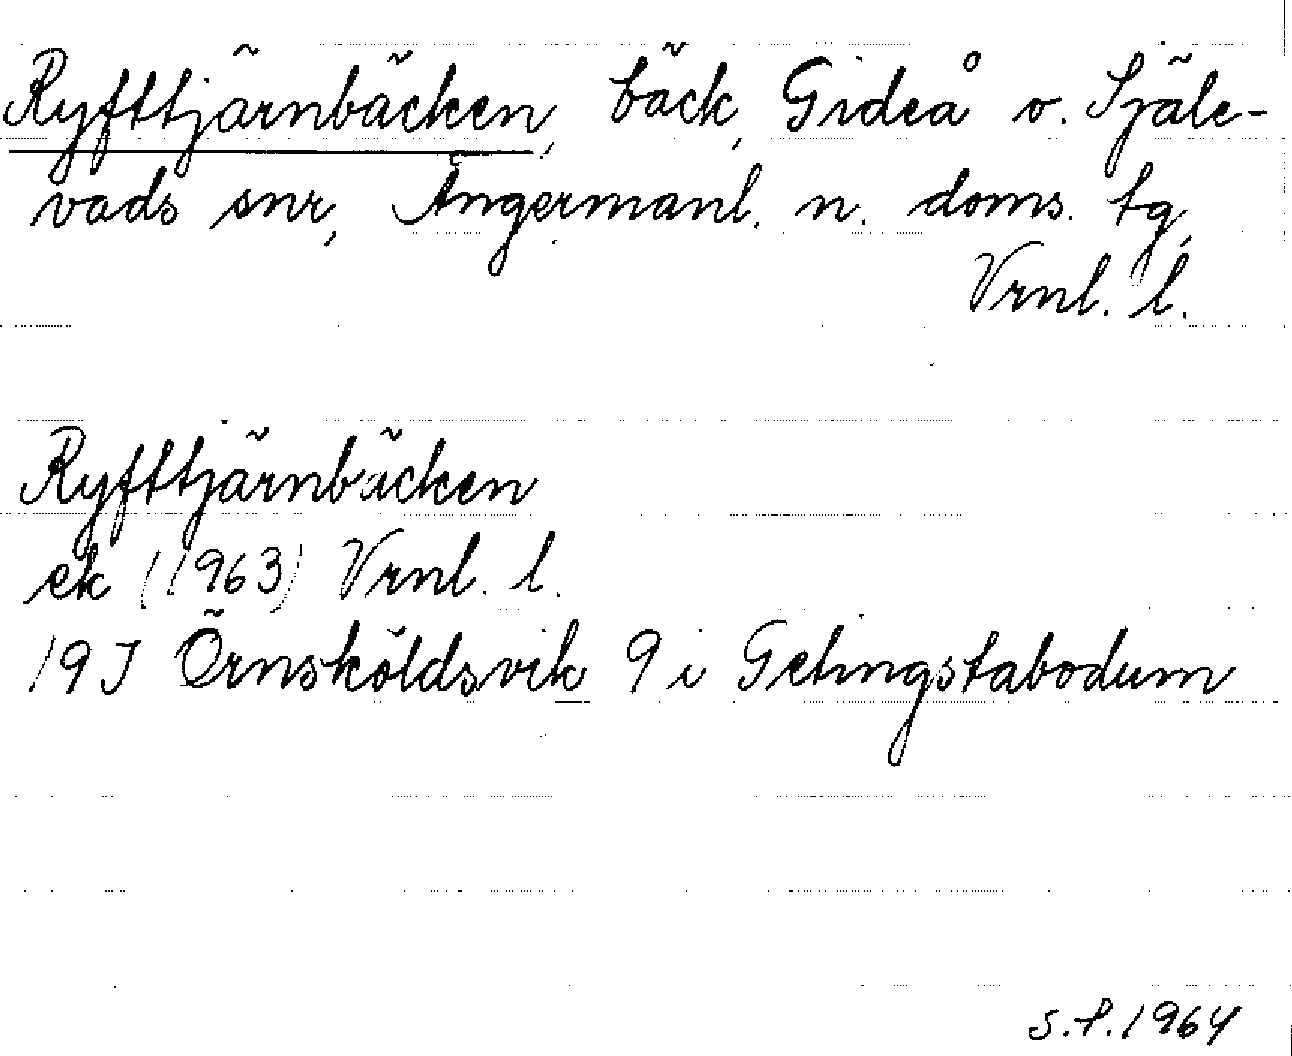 Ryfttjärnbäcken, bäck, Gideå o. Själe-
vads snr, Ångermanl. n. doms. tg,
Vrnl. l.
Ryfttjärnbäcken
ek (1963) Vrnl. l.
19J Örnsköldsvik 9 i Getingstabodum
S.P.1964